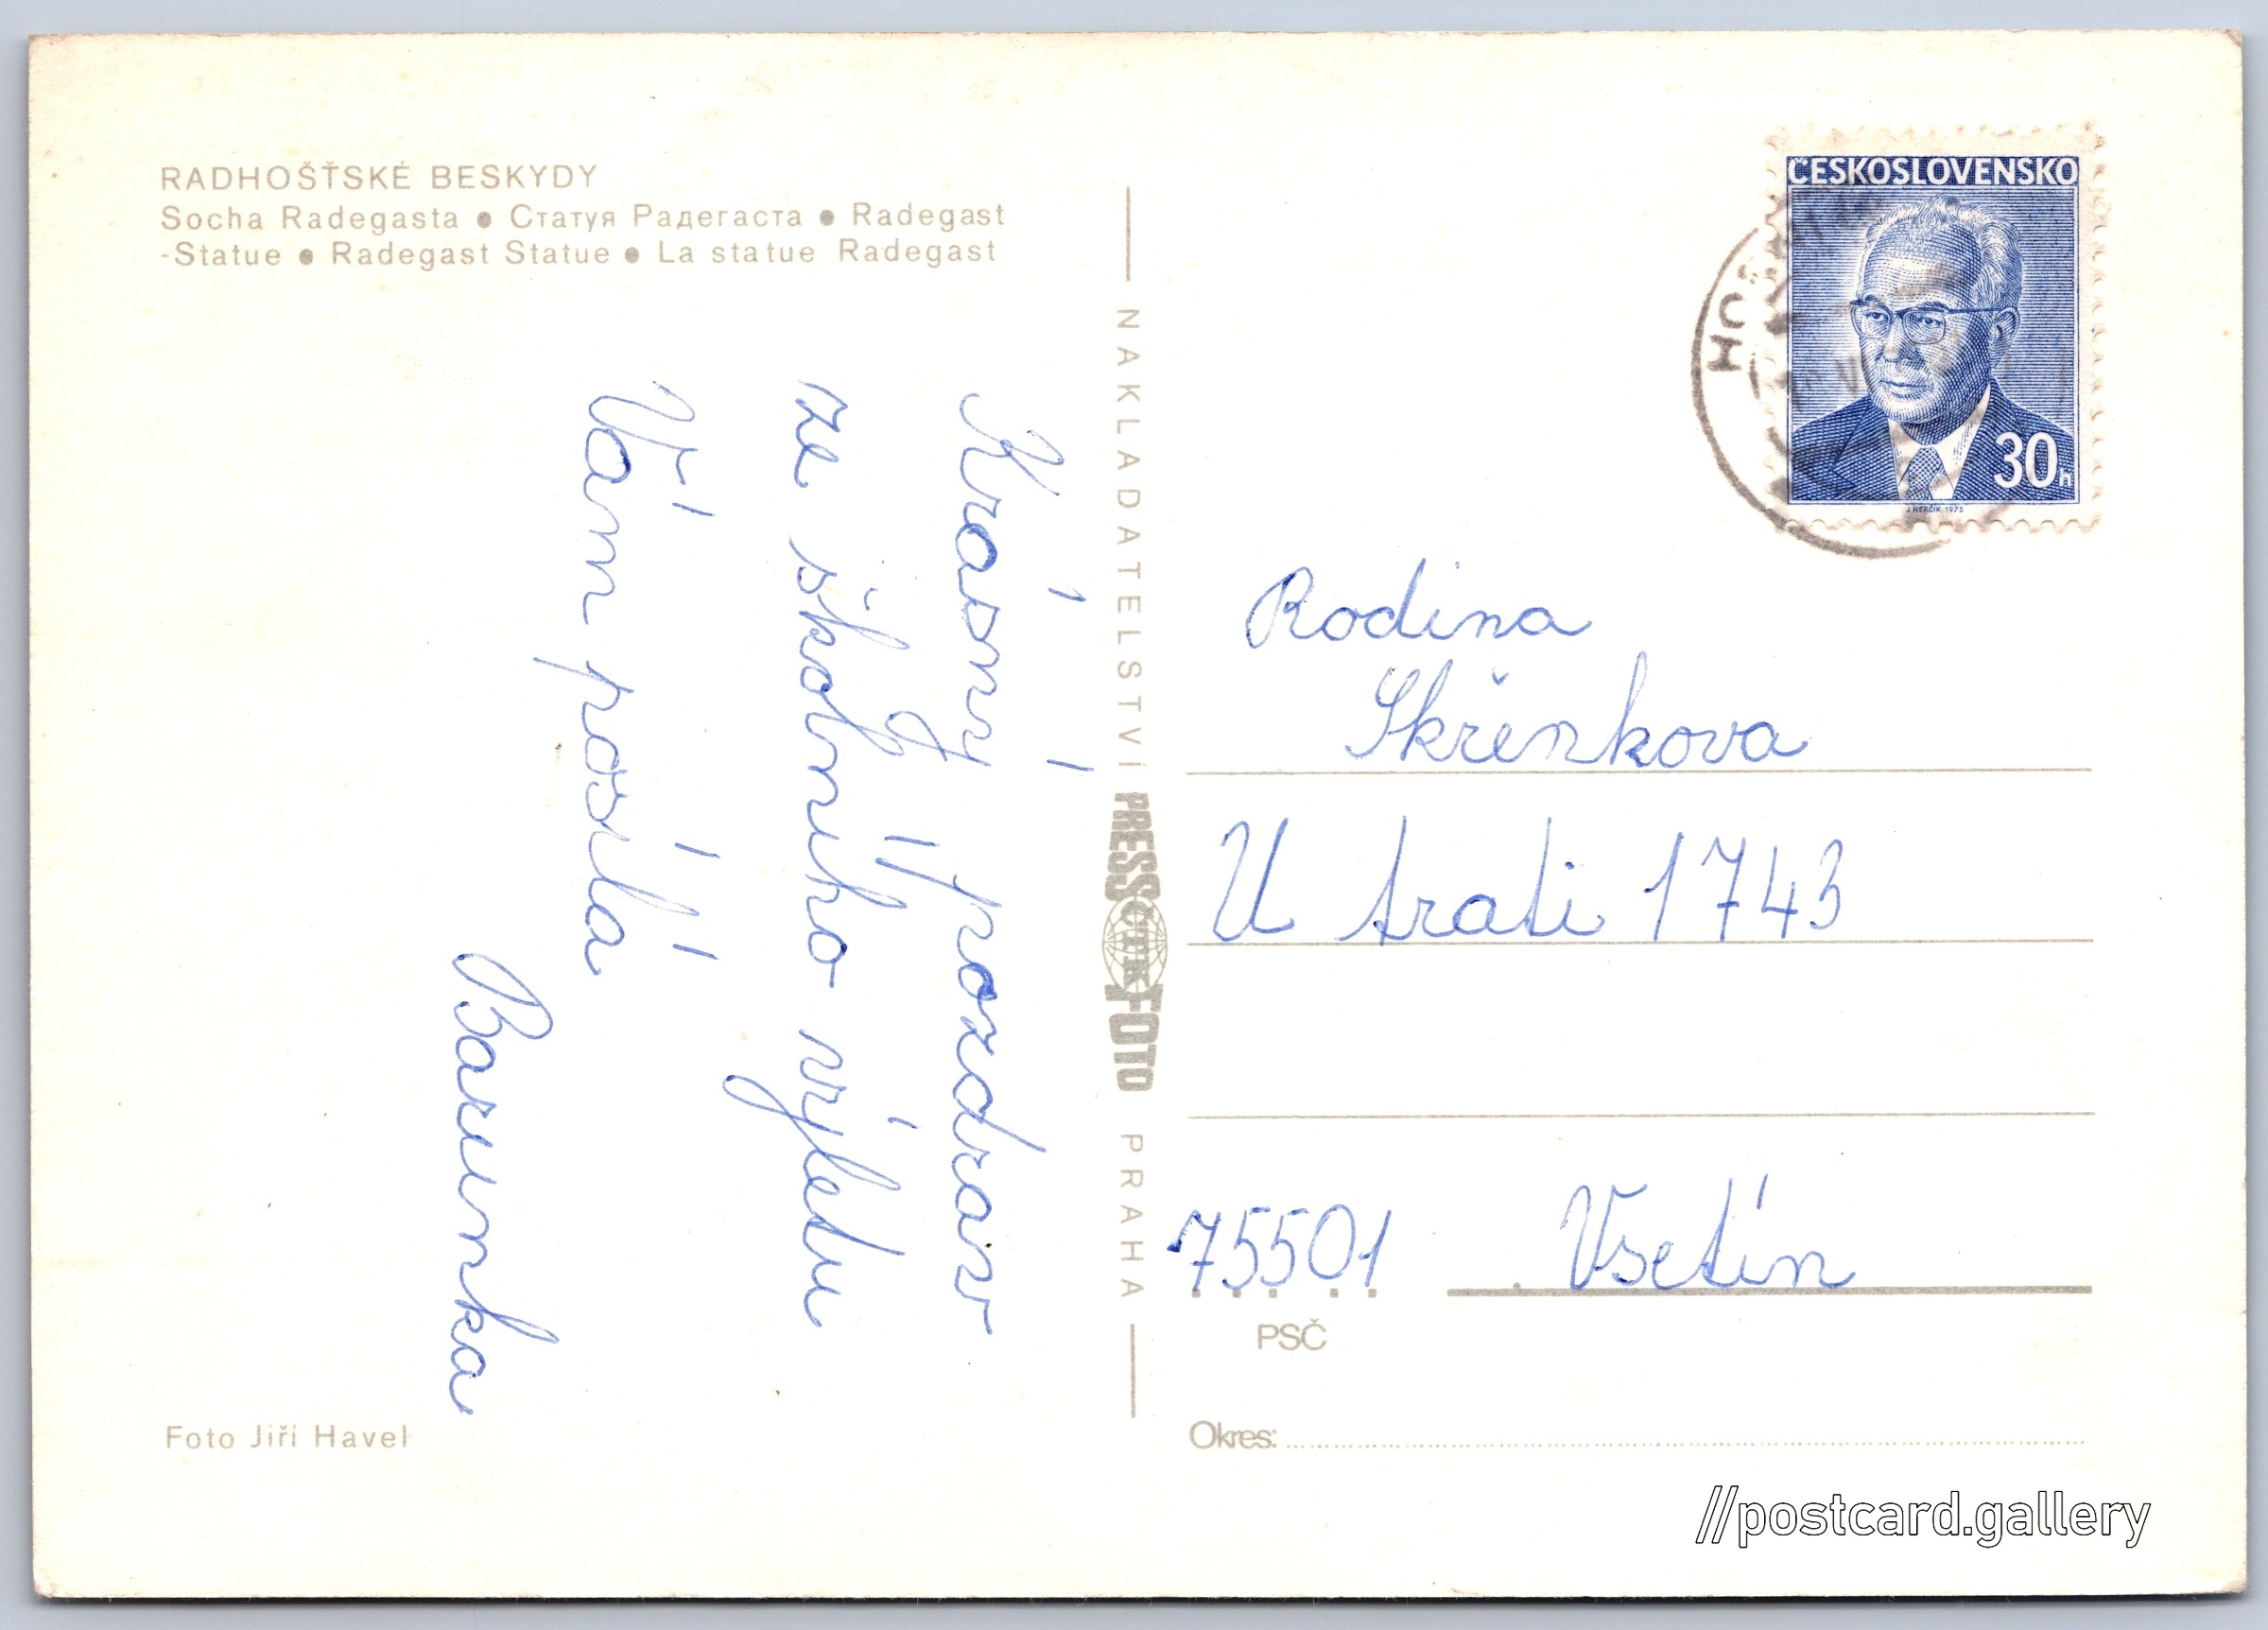 RADHOŠŤSKÉ BESKYDY
Socha Radegasta ● Статуя Радегаста ● Radegast
-Statue ● Radegast Statue ● La statue Radegast
Krásný pozdrav
ze školního výletu
Vám posílá
Barunka
Foto Jiří Havel
NAKLADATELSTVÍ PRESSFOTO PRAHA
ČTK
ČESKOSLOVENSKO
30h
J. HERČÍK 1975
Rodina
Skřenkova
U trati 1743
75501 Vsetín
PSČ
Okres:
//postcard.gallery